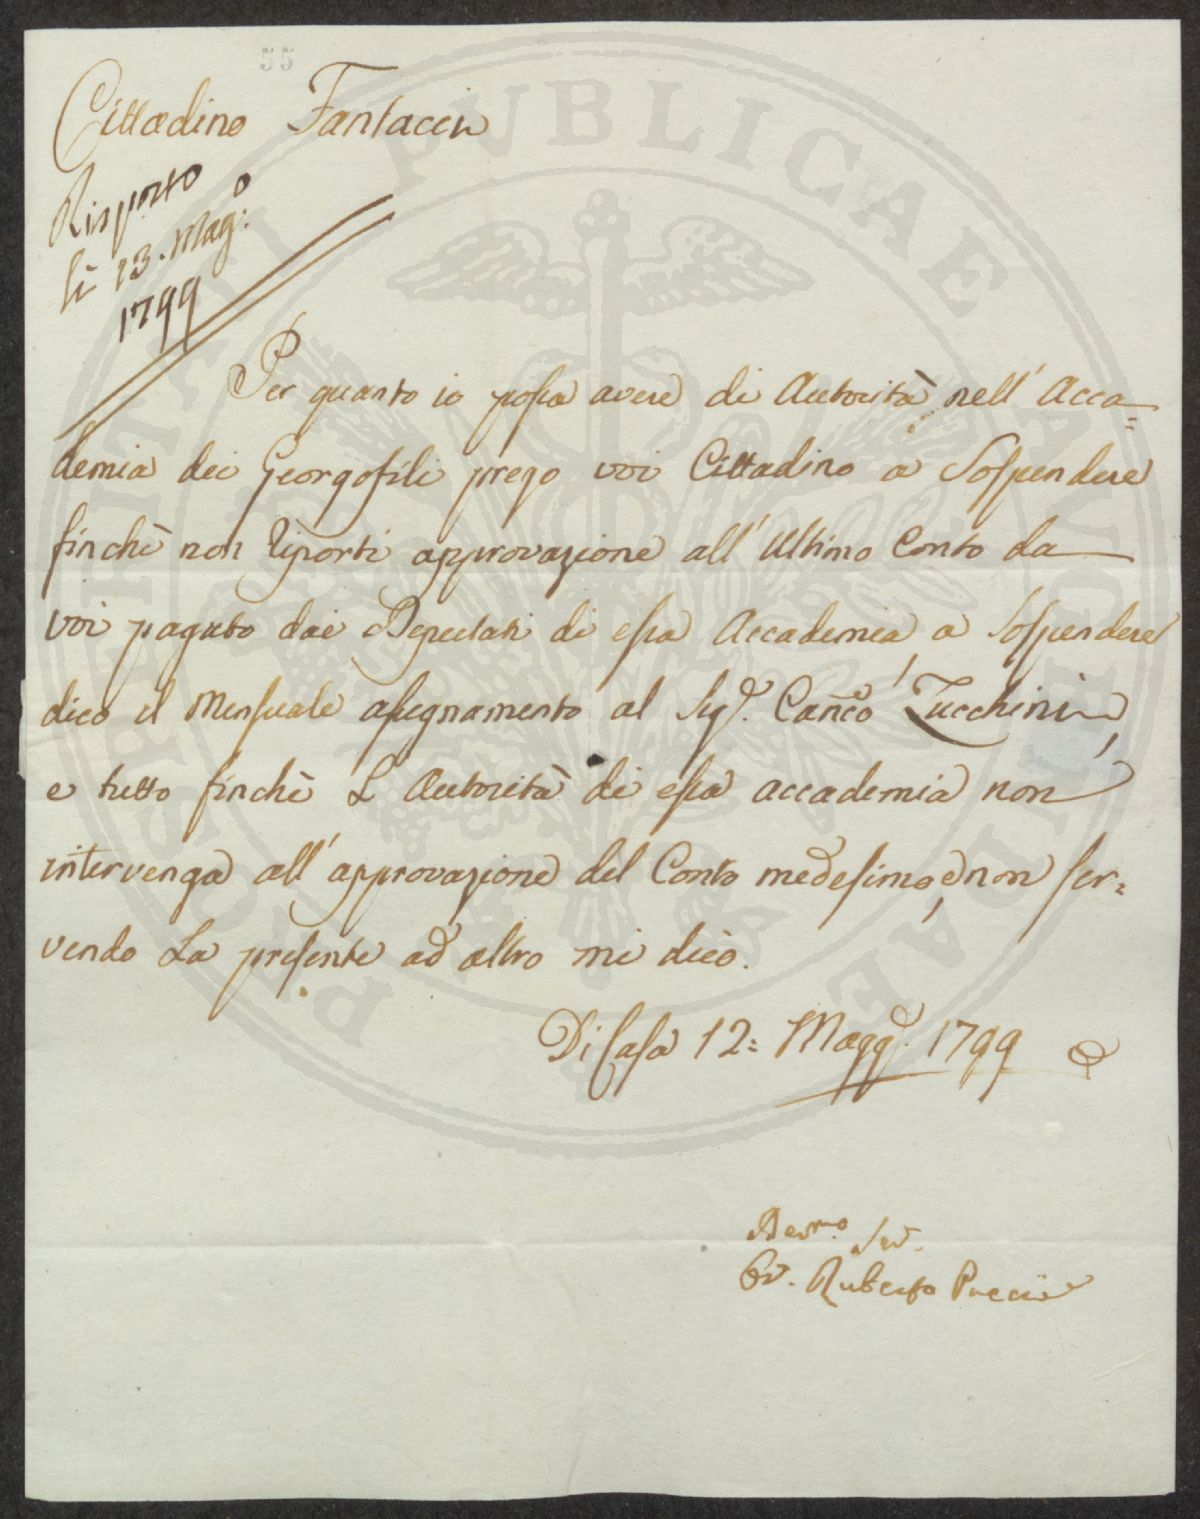 55
Cittadino Fantacci
Risposto
li 13. Mag.o
1799
Per quanto io possa avere di Autorità nell' Acca=
demia dei Georgofili prego voi Cittadino a Sospendere
finchè non riporti approvazione all' Ultimo Conto da
voi pagato dai Deputati di essa Accademia a Sospendere
dico il Mensuale assegnamento al Sig.r Canco Zucchini,
e tutto finchè L'Autorità di essa accademia non
intervenga all' approvazione del Conto medesimo, e non ser=
vendo La presente ad altro mi dico.
Di Casa 12= Magg.o 1799
Dev.mo Ser.
Roberto Pucci
PUBLICAE